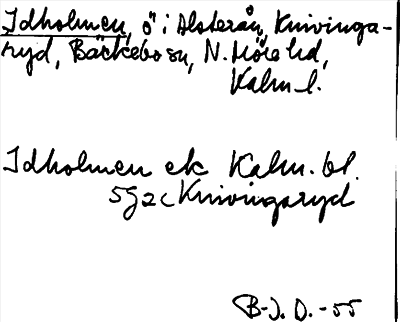 Idholmen, ö i Alsterån, Knivinga-
ryd, Bäckebo sn, N. Möre hd,
Kalm. l.
Idholmen ek Kalm. bl.
5g2c Knivingaryd
B-J. D. -55